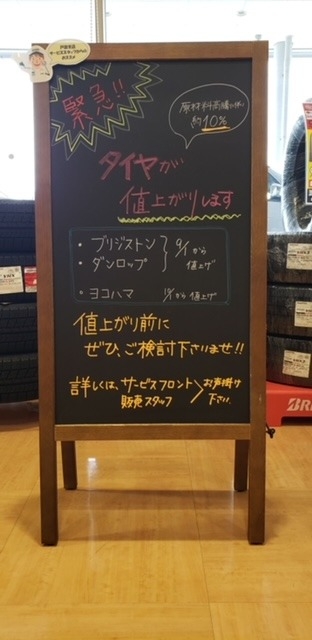 緊急!!
原材料高騰に伴い
約10%
タイヤが
値上がりします
・ブリジストン
・ダンロップ
9/1から
値上げ
・ヨコハマ 10/1から値上げ
値上がり前に
ぜひ、ご検討下さいませ!!
詳しくは、サービスフロント
販売スタッフ
お声掛け
下さい